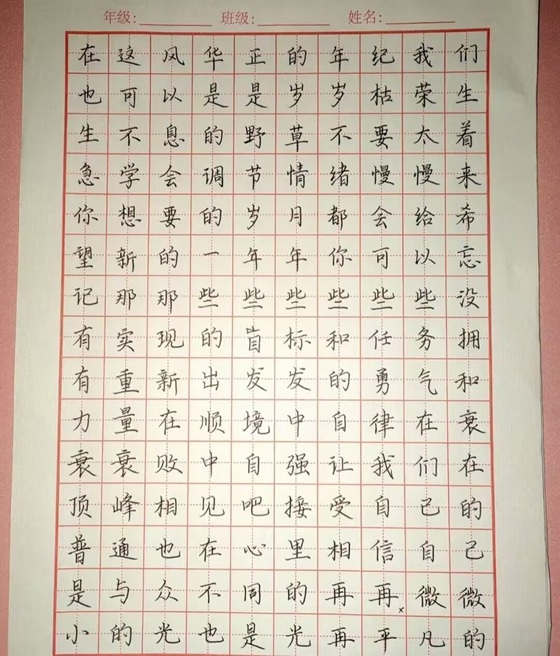 年级: 班级: 姓名:
在这风华正的年纪我们
也可以是是岁岁枯荣生
生不息的野草不要太着
急学会调节情绪慢慢来
你想要的岁月都会给希
望新的一年年你可以忘
记那那些些些些些些没
有实现的盲标和任务拥
有重新出发发的勇气和
力量在顺境中自律在衰
衰衰败中自强让我们在
顶峰相见吧接受自己的
普通也在心里相信自己
是与众不同的再再微微
小的光也是光再平凡的